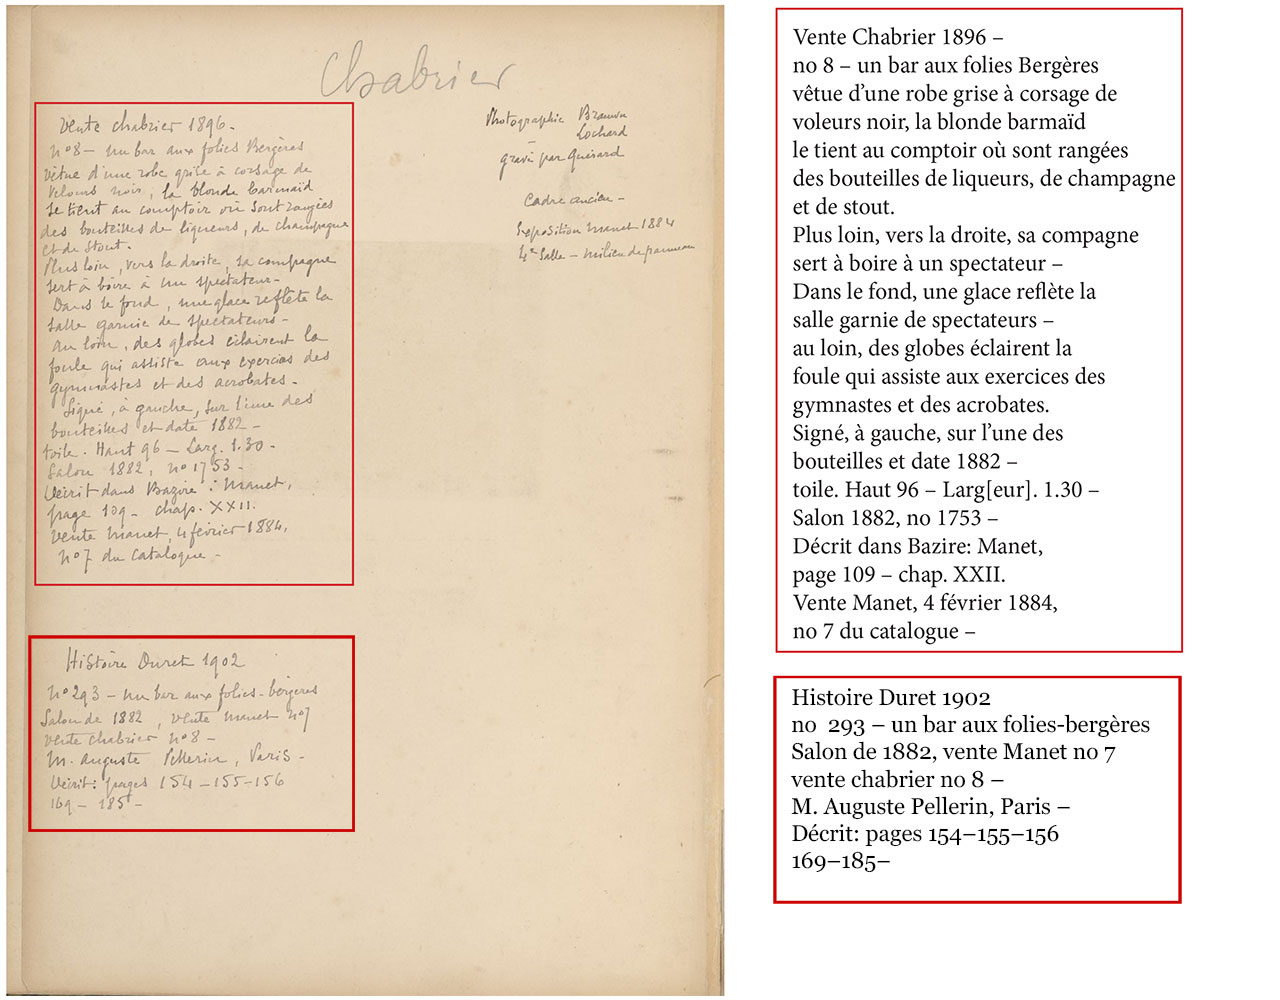 Chabrier
Vente chabrier 1896.
no 8 – un bar aux folies Bergères
vêtue d'une robe grise à corsage de
velours noir, la blonde barmaïd
se tient au comptoir où sont rangées
des bouteilles de liqueurs, de champagne
et de stout.
Plus loin, vers la droite, sa compagne
sert à boire à un spectateur –
Dans le fond, une glace reflète la
salle garnie de spectateurs –
au loin, des globes éclairent la
foule qui assiste aux exercices des
gymnastes et des acrobates –
Signé, à gauche, sur l'une des
bouteilles et date 1882 –
toile. Haut 96 – Larg. 1.30 –
Salon 1882, no 1753 –
Décrit dans Bazire : Manet,
page 109 – chap. XXII.
Vente Manet, 4 février 1884,
no 7 du catalogue –
Histoire Duret 1902
no 293 – un bar aux folies-bergères
Salon de 1882, vente Manet no 7
vente chabrier no 8 –
M. Auguste Pellerin, Paris –
Décrit : pages 154 – 155 – 156
169 – 185 –
Photographie
Lochard
–
gravé par Guérard
Cadre ancien –
Exposition Manet 1884
4e Salle – milieu de panneau
Vente Chabrier 1896 –
no 8 – un bar aux folies Bergères
vêtue d’une robe grise à corsage de
voleurs noir, la blonde barmaïd
le tient au comptoir où sont rangées
des bouteilles de liqueurs, de champagne
et de stout.
Plus loin, vers la droite, sa compagne
sert à boire à un spectateur –
Dans le fond, une glace reflète la
salle garnie de spectateurs –
au loin, des globes éclairent la
foule qui assiste aux exercices des
gymnastes et des acrobates.
Signé, à gauche, sur l’une des
bouteilles et date 1882 –
toile. Haut 96 – Larg[eur]. 1.30 –
Salon 1882, no 1753 –
Décrit dans Bazire: Manet,
page 109 – chap. XXII.
Vente Manet, 4 février 1884,
no 7 du catalogue –
Histoire Duret 1902
no  293 – un bar aux folies-bergères
Salon de 1882, vente Manet no 7
vente chabrier no 8 –
M. Auguste Pellerin, Paris –
Décrit: pages 154–155–156
169–185–